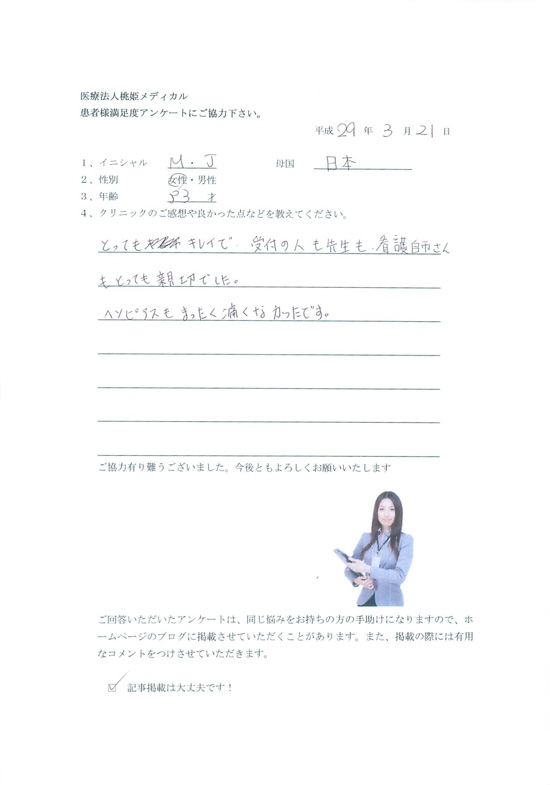 医療法人桃姫メディカル
患者様満足度アンケートにご協力下さい。
平成 29 年 3 月 21 日
1、イニシャル M・J 母国 日本
2、性別 女性・男性
3、年齢 53 才
4、クリニックのご感想や良かった点などを教えてください。
とっても キレイで、受付の人も先生も、看護師さん
もとっても親切でした。
ヘソピアスもまったく痛くなかったです。
ご協力有り難うございました。今後ともよろしくお願いいたします
ご回答いただいたアンケートは、同じ悩みをお持ちの方の手助けになりますので、ホ
ームページのブログに掲載させていただくことがあります。また、掲載の際には有用
なコメントをつけさせていただきます。
☑ 記事掲載は大丈夫です！